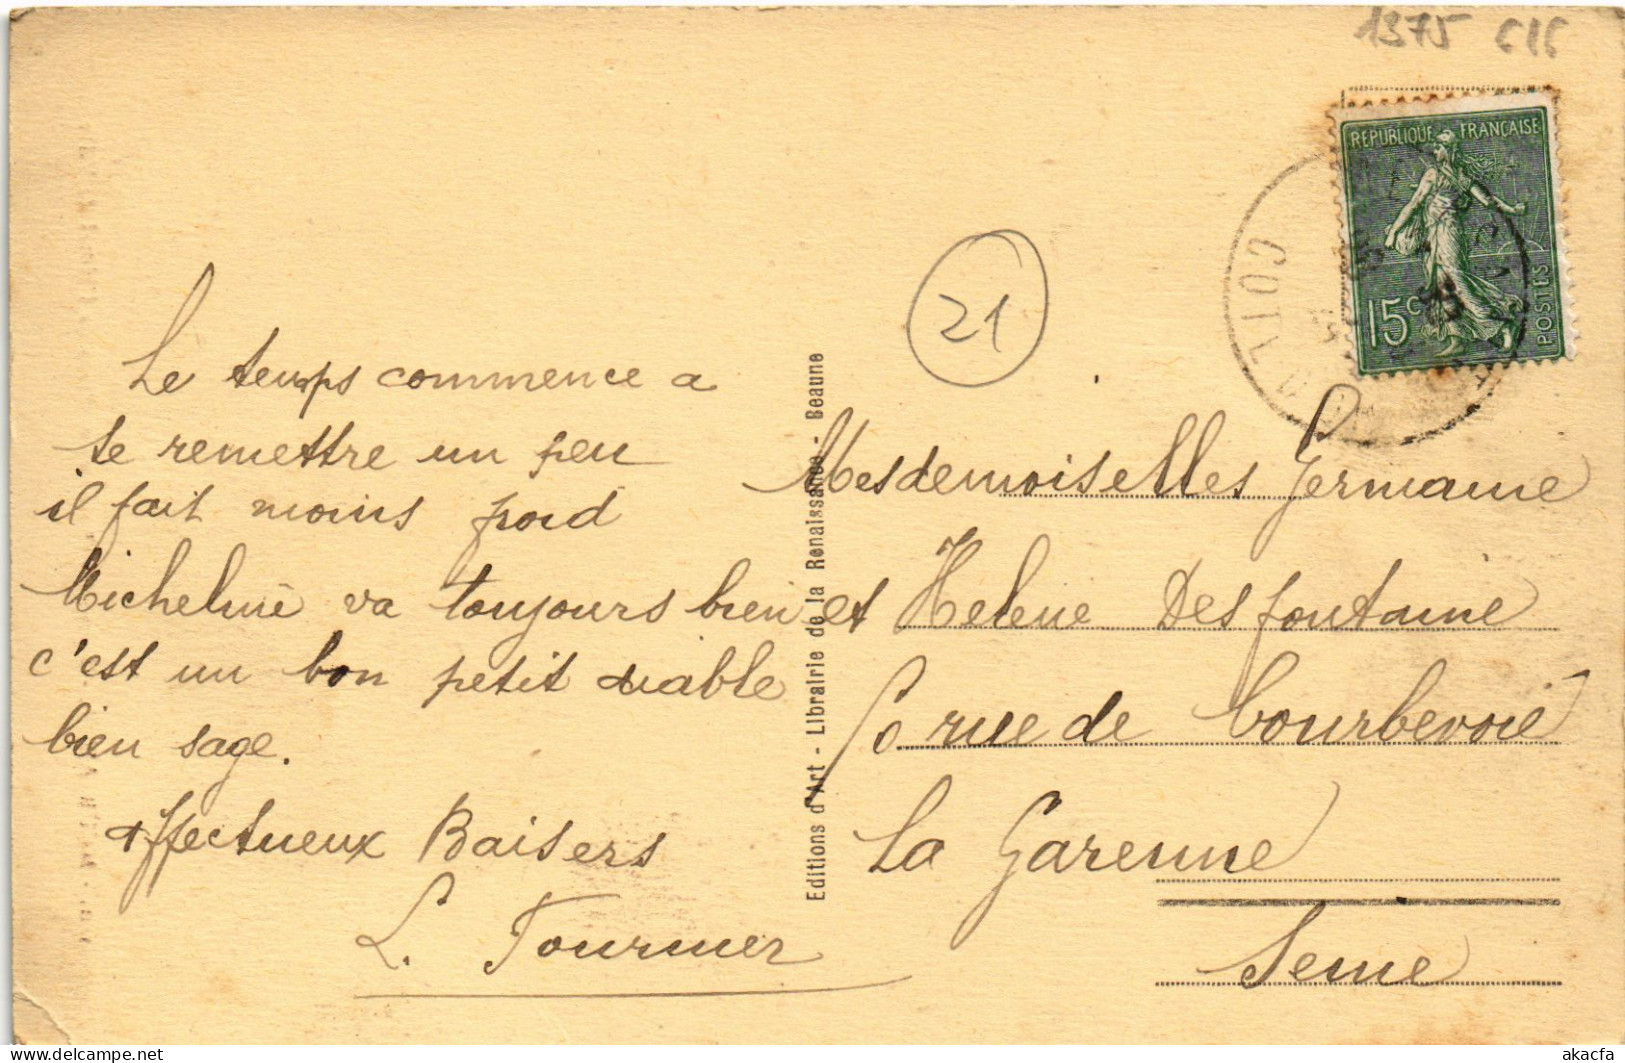 1375
Le temps commence a
se remettre un peu
il fait moins froid
Micheline va toujours bien
c'est un bon petit diable
bien sage.
affectueux Baisers
L. Tournier
Editions d'Art - Librairie de la Renaissance - Beaune
21
REPUBLIQUE FRANCAISE
15c
POSTES
Mesdemoiselles Germaine
et Helene Desfontaine
rue de Courbevoie
La Garenne
Seine
akacfa.delcampe.net